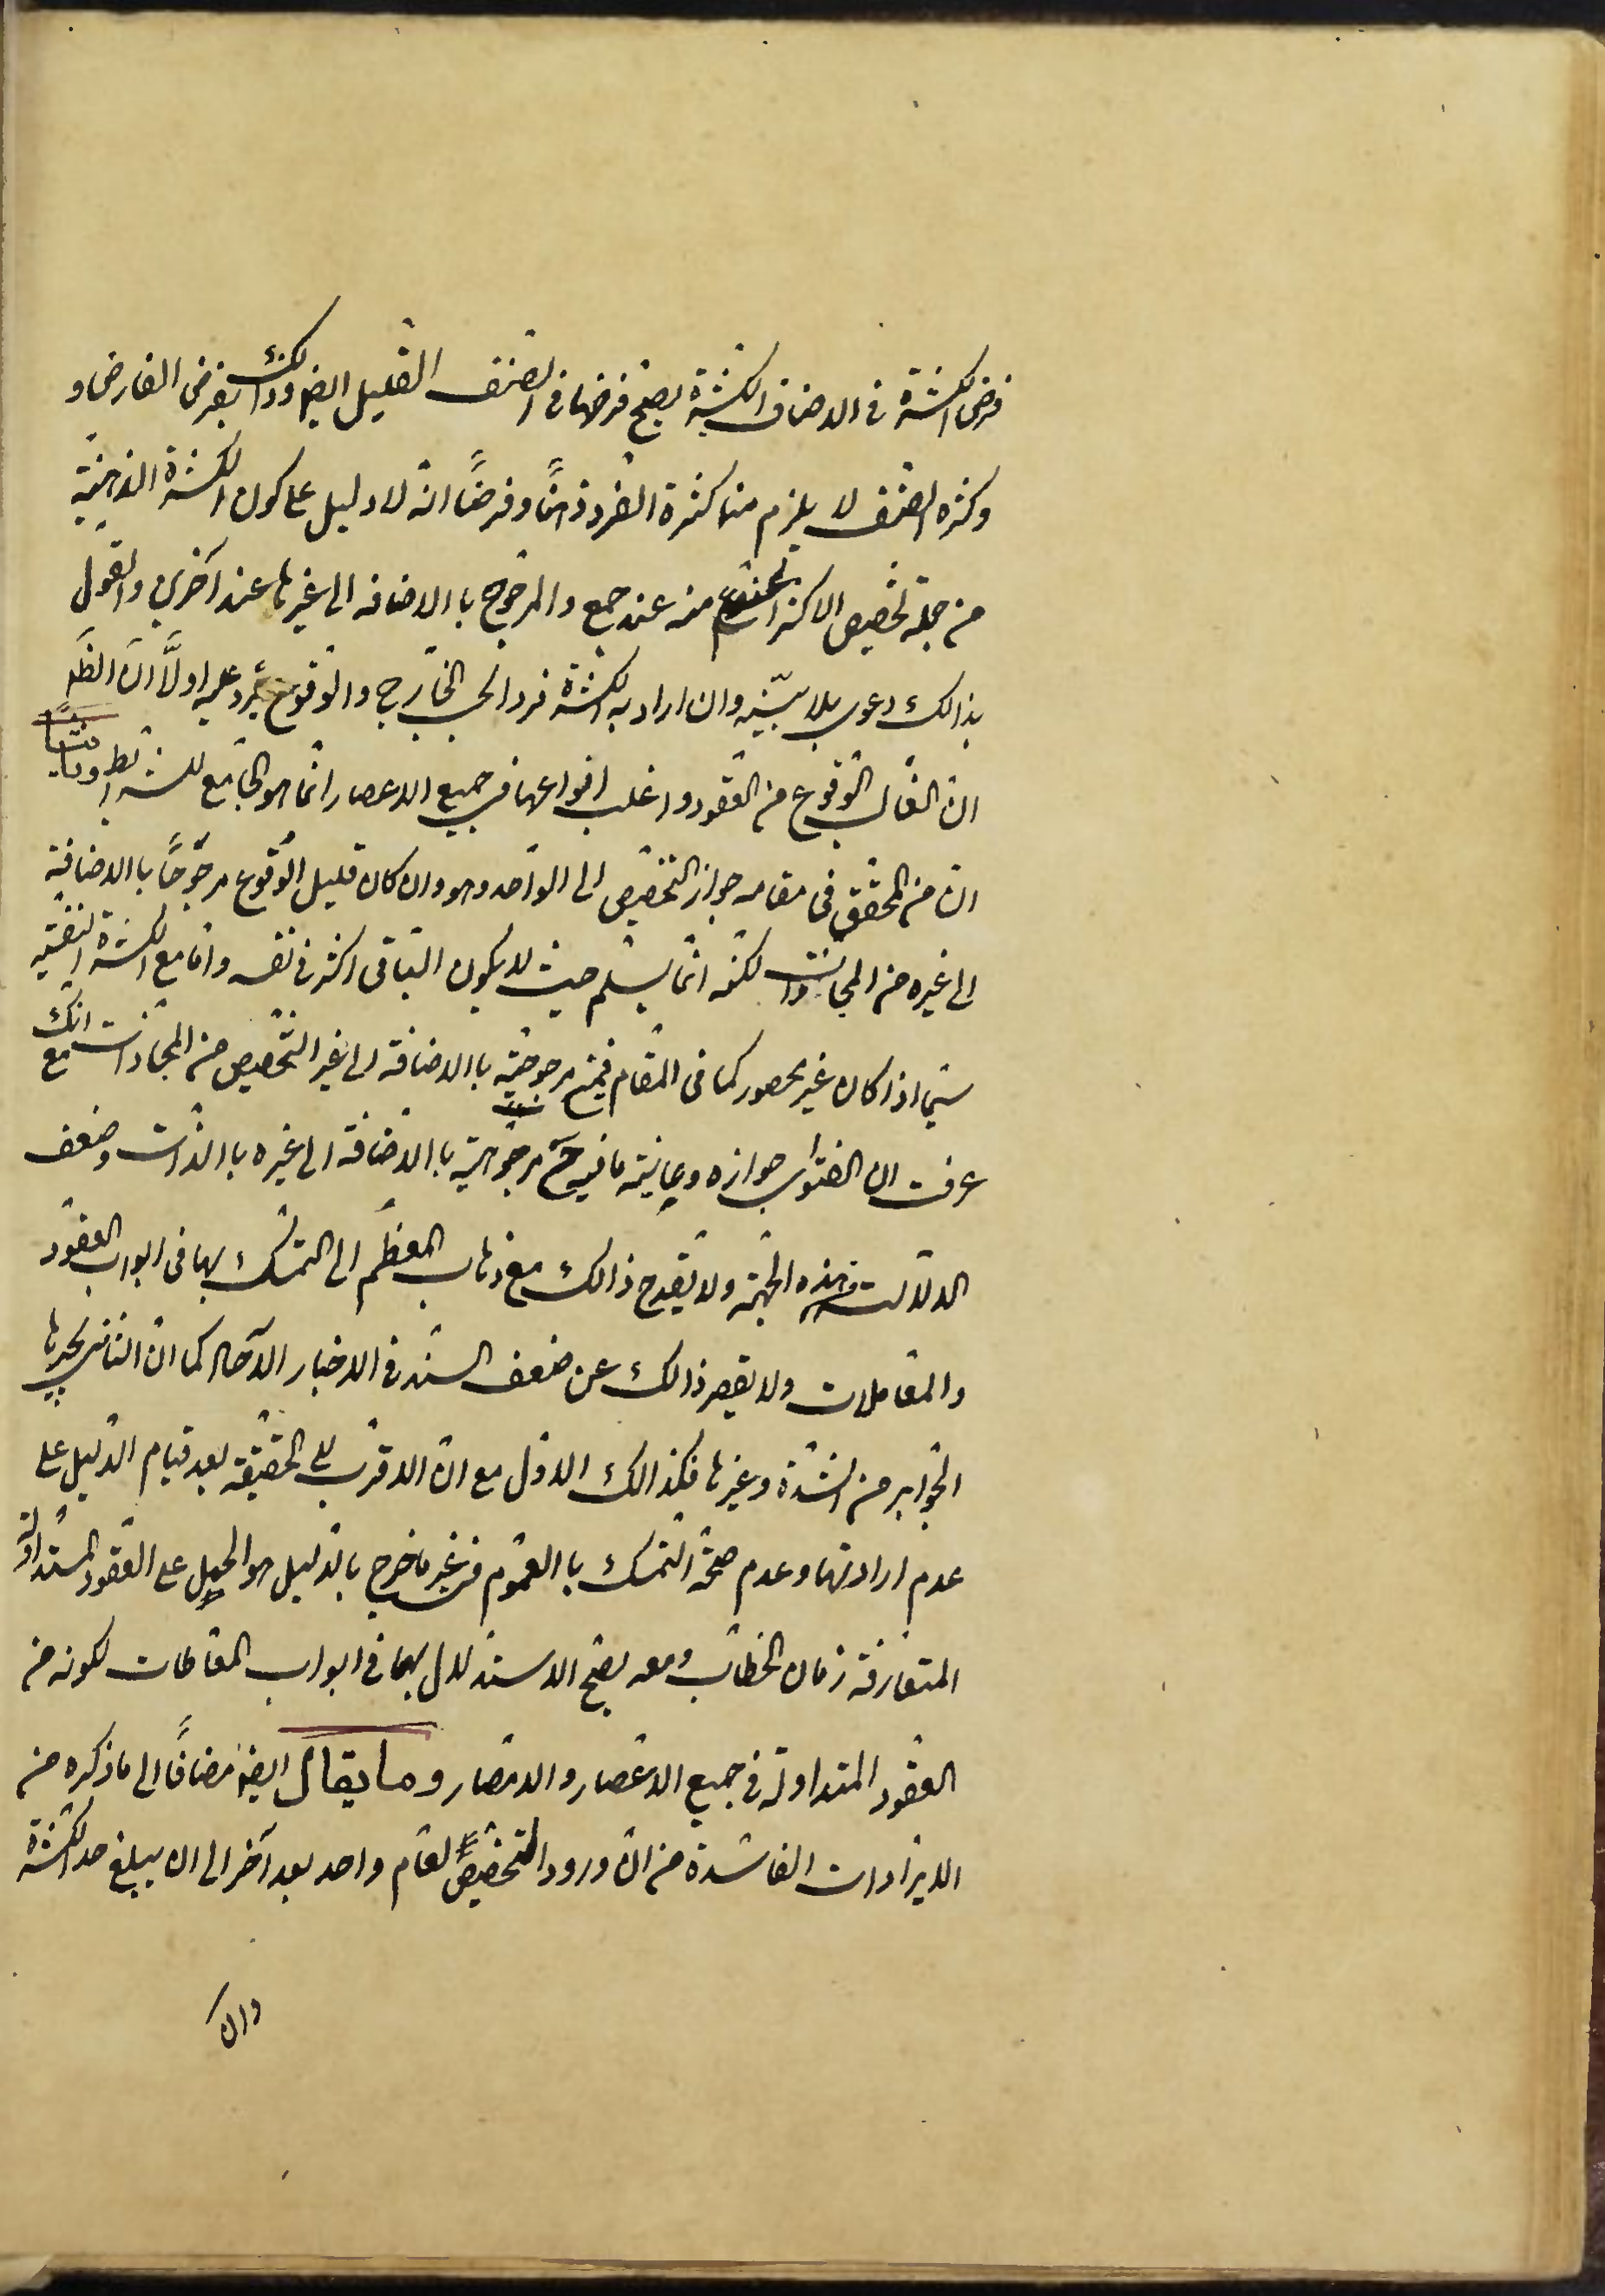 فرض الكثرة فى الاصناف الكثيرة يصح فرضها فى الصنف القليل ايضا وذالك بفرض الفارض و
وكثرة الصنف لا يلزم منها كثرة الفرد ذهنًا وفرضًا انه لا دليل على كون الكثرة الذهنية
من جملة تخصيص الاكثر الممنوع منه عند جمع والمرجوح بالاضافة الى غيرها عند آخرين والقول
بذالك دعوى بلا بيّنه وان اراد به الكثرة فردا بحسب الخارج والوقوع يرد عليه اولًا ان الظم
ان الغالب الوقوع من العقود واغلب افرادها فى جميع الاعصار انما هو الجامع للشرائط وثانيًا
ان من المحقق فى مقامه جواز التخصيص الى الواحد وهو وان كان قليل الوقوع مرجوحًا بالاضافة
الى غيره من المجازات لكنه انما يسلم حيث لا يكون الباقى اكثر فى نفسه واما مع الكثرة النفسية
سيما اذا كان غير محصور كما فى المقام فيمنع مرجوحية بالاضافة الى غير التخصيص من المجازات مع انك
عرفت ان الصواب جوازه وغايته ما فيه ح مرجوحية بالاضافة الى غيره بالذات وضعف
الدلالة من هذه الجهة ولا يقدح ذالك مع ذهاب المعظم الى التمسك بها فى ابواب العقود
والمعاملات ولا يقصر ذالك عن ضعف السند فى الاخبار الآحاد كما ان الثانى يجبرها
الجوابر من الشهرة وغيرها فكذالك الاول مع ان الاقرب الى الحقيقة بعد قيام الدليل على
عدم ارادتها وعدم صحة التمسك بالعموم فى غير ما خرج بالدليل هو الحمل على العقود المتداولة
المتعارفة زمان الخطاب ومعه يصح الاستدلال بها فى ابواب المعاملات لكونه من
العقود المتداولة فى جميع الاعصار والامصار وما يقال ايضا مضافًا الى ما ذكره من
الايرادات الفاسدة من ان ورود التخصيص لعام واحد بعد آخر الى ان يبلغ حد الكثرة
وان